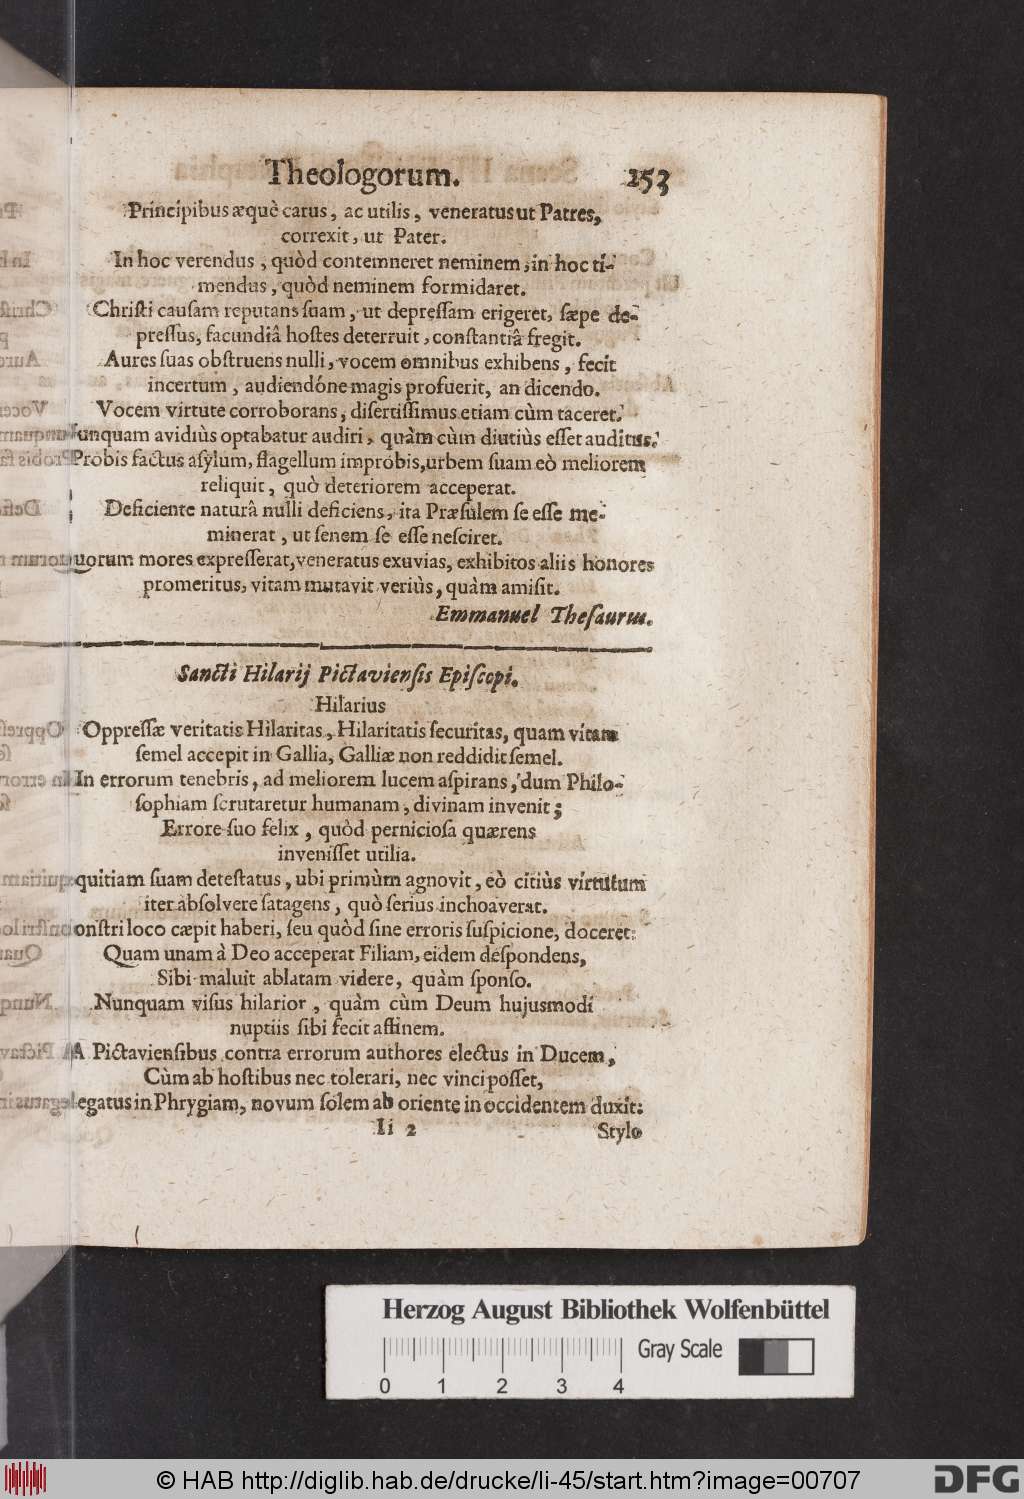 Theologorum. 253
Principibus æquè carus, ac utilis, veneratus ut Patres,
correxit, ut Pater.
In hoc verendus, quòd contemneret neminem, in hoc ti-
mendus, quòd neminem formidaret.
Christi causam reputans suam, ut depressam erigeret, sæpe de-
pressus, facundiâ hostes deterruit, constantiâ fregit.
Aures suas obstruens nulli, vocem omnibus exhibens, fecit
incertum, audiendóne magis profuerit, an dicendo.
Vocem virtute corroborans, disertissimus etiam cùm taceret.
unquam avidiùs optabatur audiri, quàm cùm diutiùs esset auditus.
Probis factus asylum, flagellum improbis, urbem suam eò meliorem
reliquit, quò deteriorem acceperat.
Deficiente naturâ nulli deficiens, ita Præsulem se esse me-
minerat, ut senem se esse nesciret.
quorum mores expresserat, veneratus exuvias, exhibitos aliis honores
promeritus, vitam mutavit veriùs, quàm amisit.
Emmanuel Thesaurus.
Sancti Hilarij Pictaviensis Episcopi.
Hilarius
Oppressæ veritatis Hilaritas, Hilaritatis securitas, quam vitam
semel accepit in Gallia, Galliæ non reddidit semel.
In errorum tenebris, ad meliorem lucem aspirans, dum Philo-
sophiam scrutaretur humanam, divinam invenit;
Errore suo felix, quòd perniciosa quærens
invenisset utilia.
quitiam suam detestatus, ubi primùm agnovit, eò citiùs virtutum
iter absolvere satagens, quò serius inchoaverat.
onstri loco cæpit haberi, seu quòd sine erroris suspicione, doceret:
Quam unam à Deo acceperat Filiam, eidem despondens,
Sibi maluit ablatam videre, quàm sponso.
Nunquam visus hilarior, quàm cùm Deum hujusmodi
nuptiis sibi fecit affinem.
A Pictaviensibus contra errorum authores electus in Ducem,
Cùm ab hostibus nec tolerari, nec vinci posset,
legatus in Phrygiam, novum solem ab oriente in occidentem duxit:
Ii 2 Stylo
Herzog August Bibliothek Wolfenbüttel
Gray Scale
0 1 2 3 4
© HAB http://diglib.hab.de/drucke/li-45/start.htm?image=00707
DFG